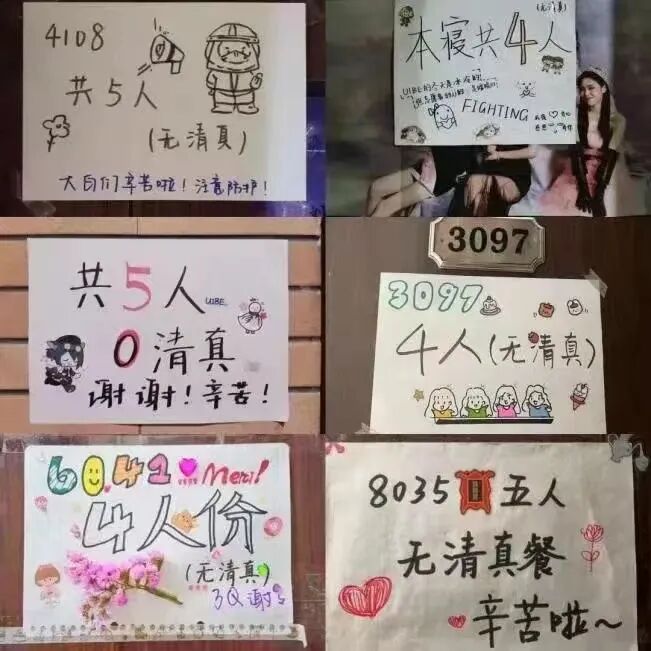 4108
共5人
(无清真)
大白们辛苦啦!注意防护!
(无清真)
本寝共4人
FIGHTING
共5人
UIBE
0清真
谢谢!辛苦!
3097
3097
4人(无清真)
6041 Merci!
4人份
(无清真)
3Q谢
8035 五人
无清真餐
辛苦啦~